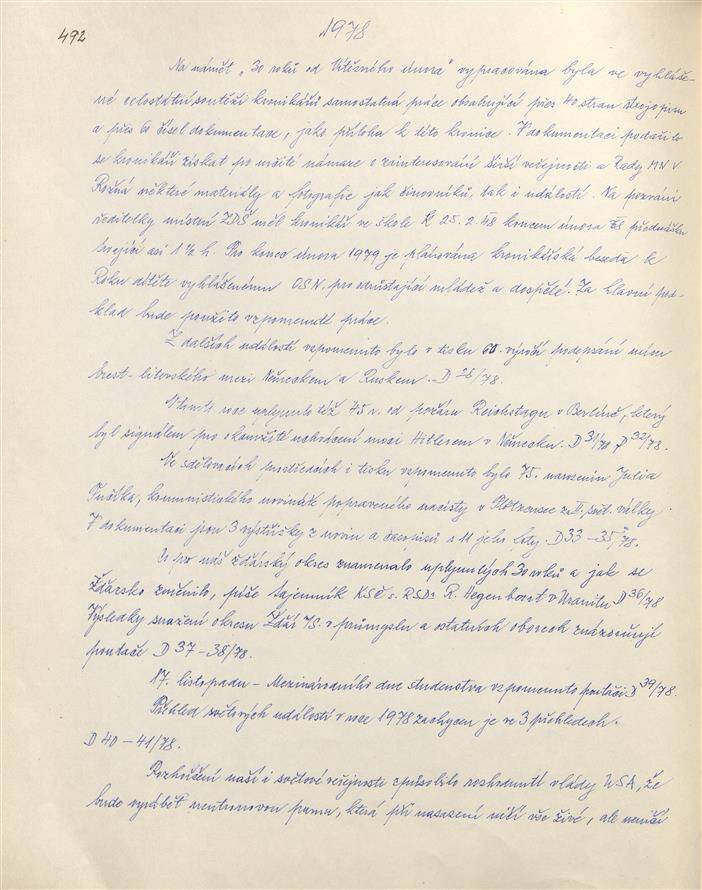 492
1978
Na námět „30 roků od Vítězného února" vypracována byla ve vyhláše-
né celostátní soutěži kronikářů samostatná práce obsahující přes 40 stran strojopisu
a přes 60 čísel dokumentace, jako příloha k této kronice. V dokumentaci podařilo
se kronikáři získat po určité námaze o zainteresování širší veřejnosti a Rady MNV
Rožná některé materiály a fotografie jak činovníků, tak i událostí. Na pozvání
ředitelky místní ZDŠ měl kronikář ve škole k 25. 2. 48 koncem února 78 přednášku
trvající asi 1 1/2 h. Pro konec února 1979 je plánována kronikářská beseda k
Roku dítěte vyhlášenému OSN, pro odrůstající mládež a dospělé. Za hlavní pod-
klad bude použito vzpomenuté práce.
Z dalších událostí vzpomenuto bylo v tisku 60. výročí podepsání míru
brest-litevského mezi Německem a Ruskem. D 28/78.
roce uplynulo též 45 r. od požáru Reichstagu v Berlíně, který
byl signálem pro okamžité uchvácení moci Hitlerem v Německu. D 31/78, D 32/78.
Ve sdělovacích prostředcích i tisku vzpomenuto bylo 75. narozenin Julia
Fučíka, komunistického novináře popraveného nacisty v Plötzensee za II. svět. války.
V dokumentaci jsou 3 výstřižky z novin a časopisů s 11 jeho foty. D 33-35/78.
Co pro náš žďárský okres znamenalo uplynulých 30 roků a jak se
Žďársko změnilo, píše tajemník KSČ s. RSDr R. Hegenbart v Hranitu D 36/78
Výsledky snažení okresu Žďár /S. v průmyslu a ostatních oborech znázorňují
poutače D 37-38/78.
17. listopadu - Mezinárodního dne studenstva vzpomenuto D 39/78.
Přehled světových událostí v roce 1978 zachycen je ve 3 přehledech.
D 40-41/78.
Rozhořčení naší i světové veřejnosti způsobilo rozhodnutí vlády USA, že
bude vyrábět neutronovou pumu, která při nasazení ničí vše živé, ale neničí